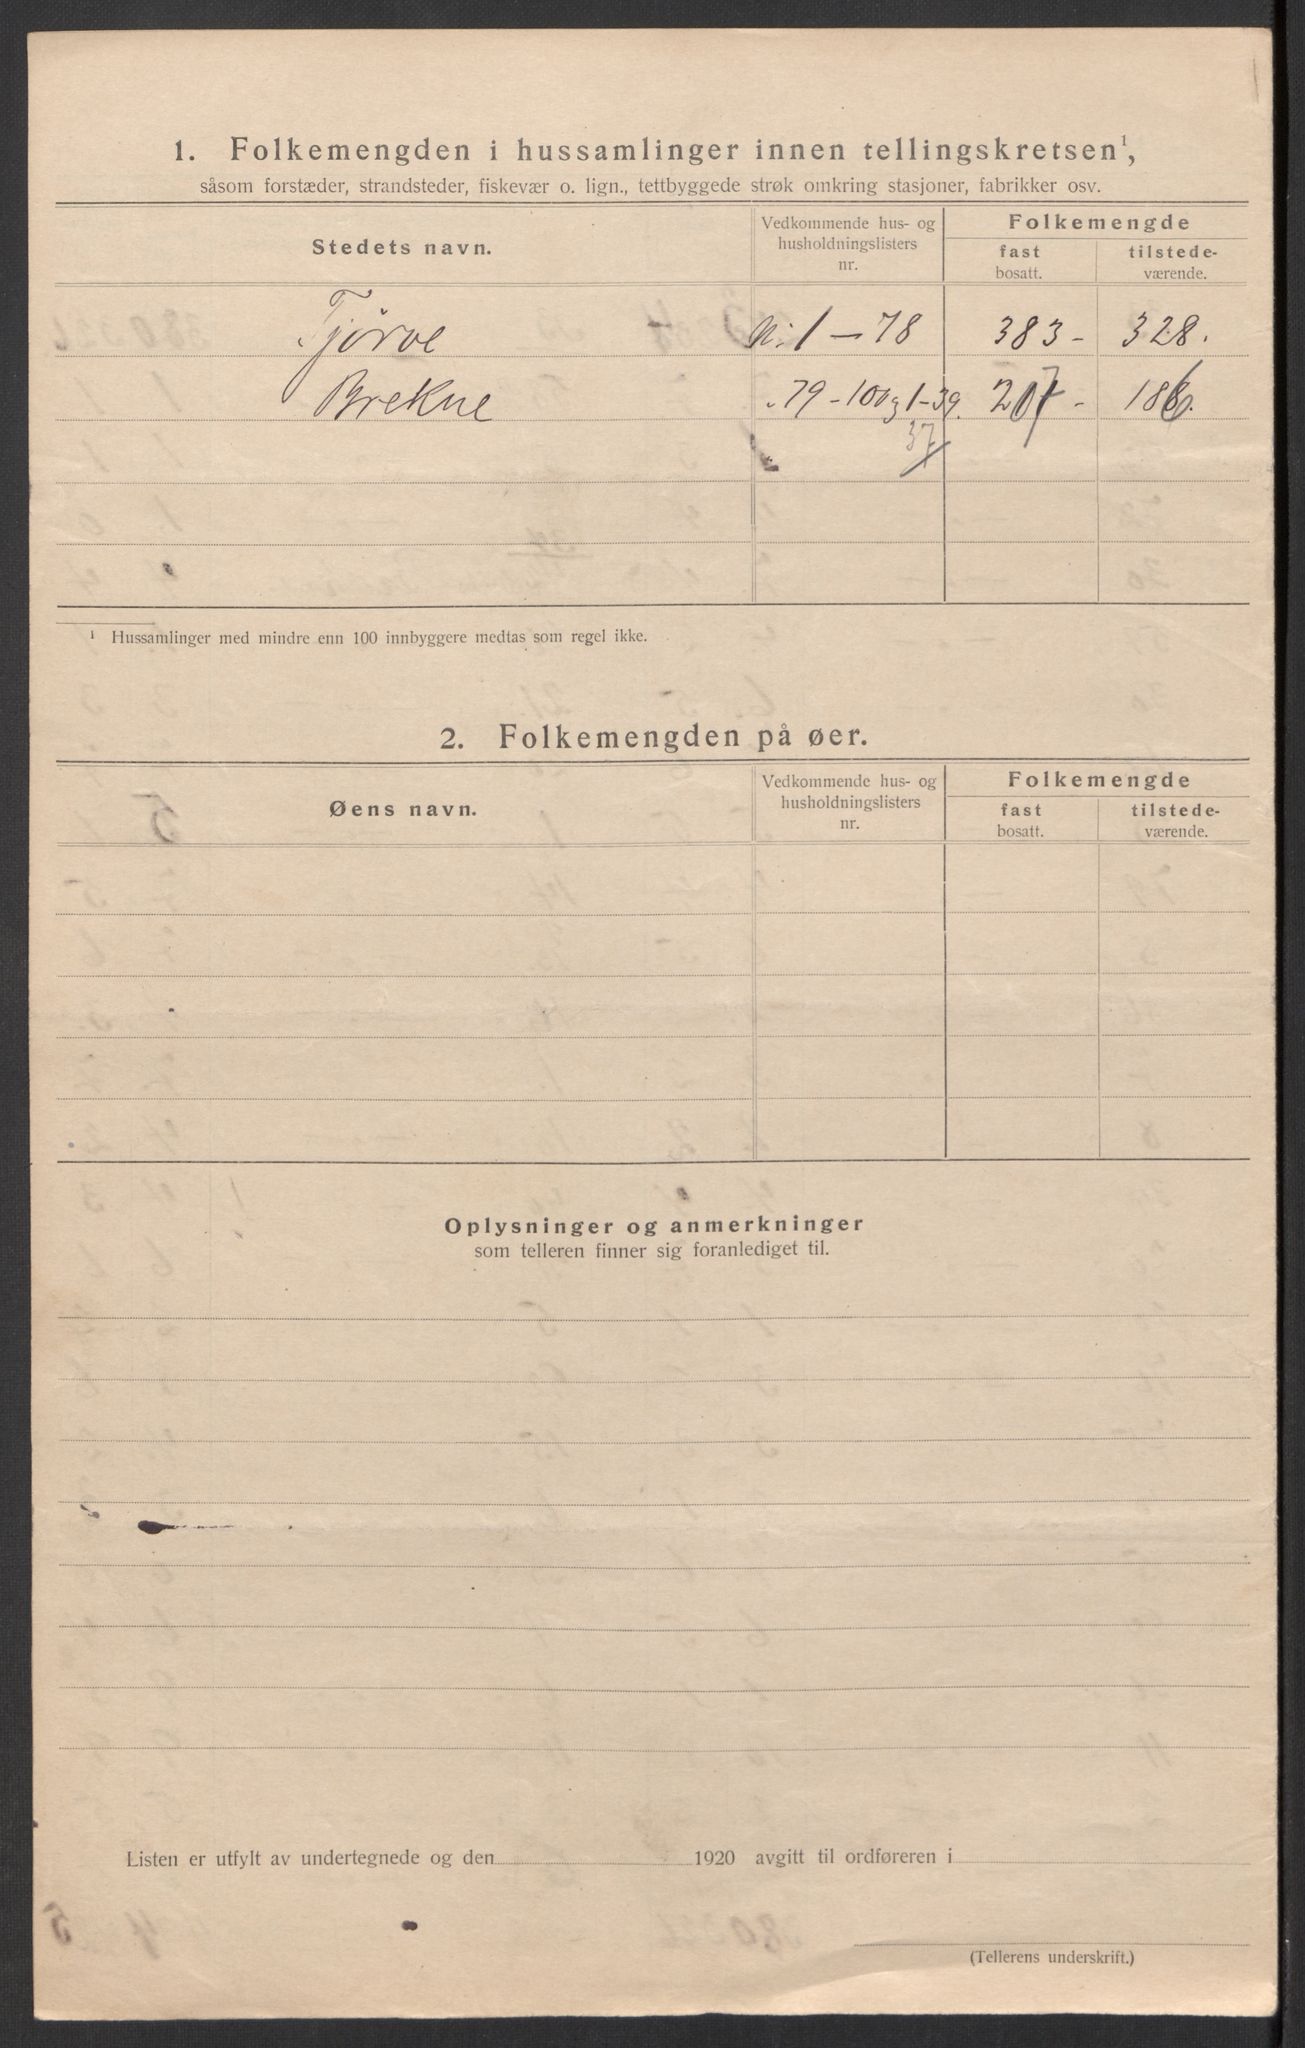 1. Folkemengden i hussamlinger innen tellingskretsen¹,
såsom forstæder, strandsteder, fiskevær o. lign., tettbyggede strøk omkring stasjoner, fabrikker osv.
Stedets navn.
Vedkommende hus- og husholdningslisters nr.
Folkemengde
fast bosatt.
tilstede-værende.
Tjörve Nr. 1 – 78 383 – 328.
Brekne " 79 – 100 og 1 – 39.
37
¹ Hussamlinger med mindre enn 100 innbyggere medtas som regel ikke.
2. Folkemengden på øer.
Øens navn.
Vedkommende hus- og husholdningslisters nr.
Folkemengde
fast bosatt.
tilstede-værende.
Oplysninger og anmerkninger
som telleren finner sig foranlediget til.
Listen er utfylt av undertegnede og den 1920 avgitt til ordføreren i
(Tellerens underskrift.)